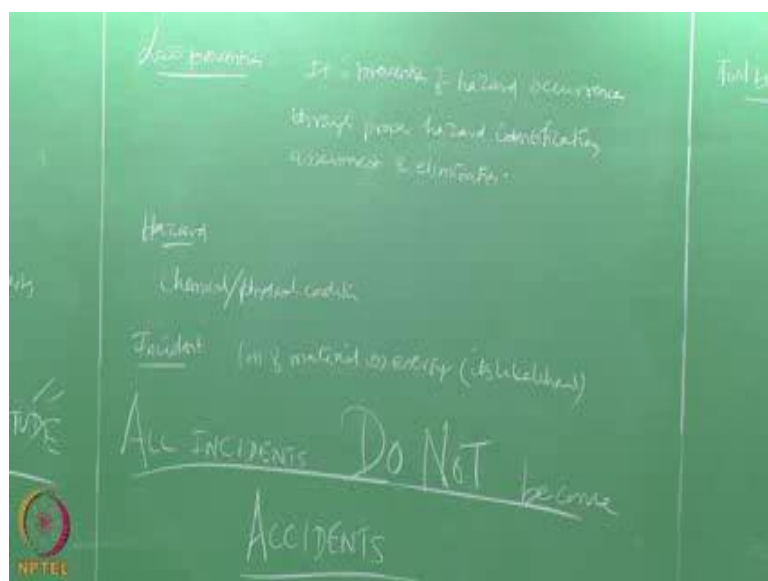 Loss prevention
It is prevention of hazard occurrence
through proper hazard identification,
assessment & elimination.
Hazard
Chemical/physical condition
Incident
loss of material or energy (its likelihood)
ALL INCIDENTS DO NOT become
ACCIDENTS
TUDE
NPTEL